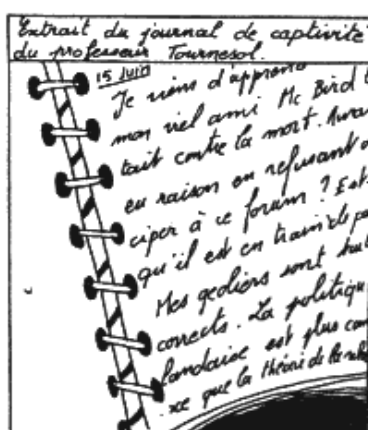 Extrait du journal de captivité
du professeur Tournesol.
15 Juin
Je viens d'apprend
mon vieil ami Mc Bird l
tait contre la mort. Aurai
eu raison en refusant d
ciper à ce forum ? Est-
qu'il est en train de pa
Mes geôliers sont tout
corrects. La politiqu
landaise est plus com
xe que la théorie de la rela